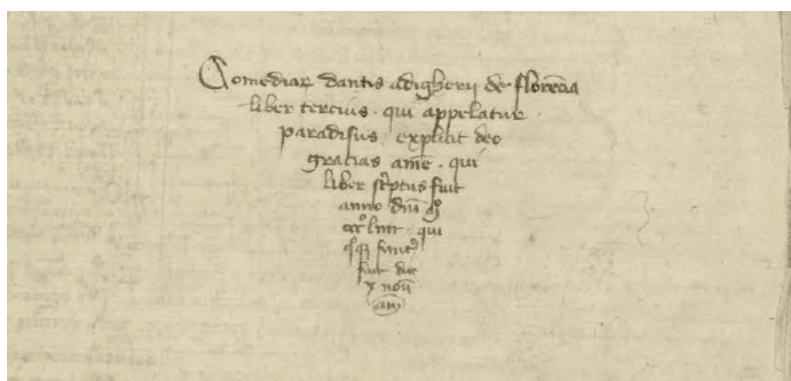 Comediar dantis adigherii de florēcia
liber tercius · qui appelatur
paradisus explicit deo
gracias amē · qui
liber scptus fuit
anno dni mº
cccº liiii · qui
fuit die
x nou
am